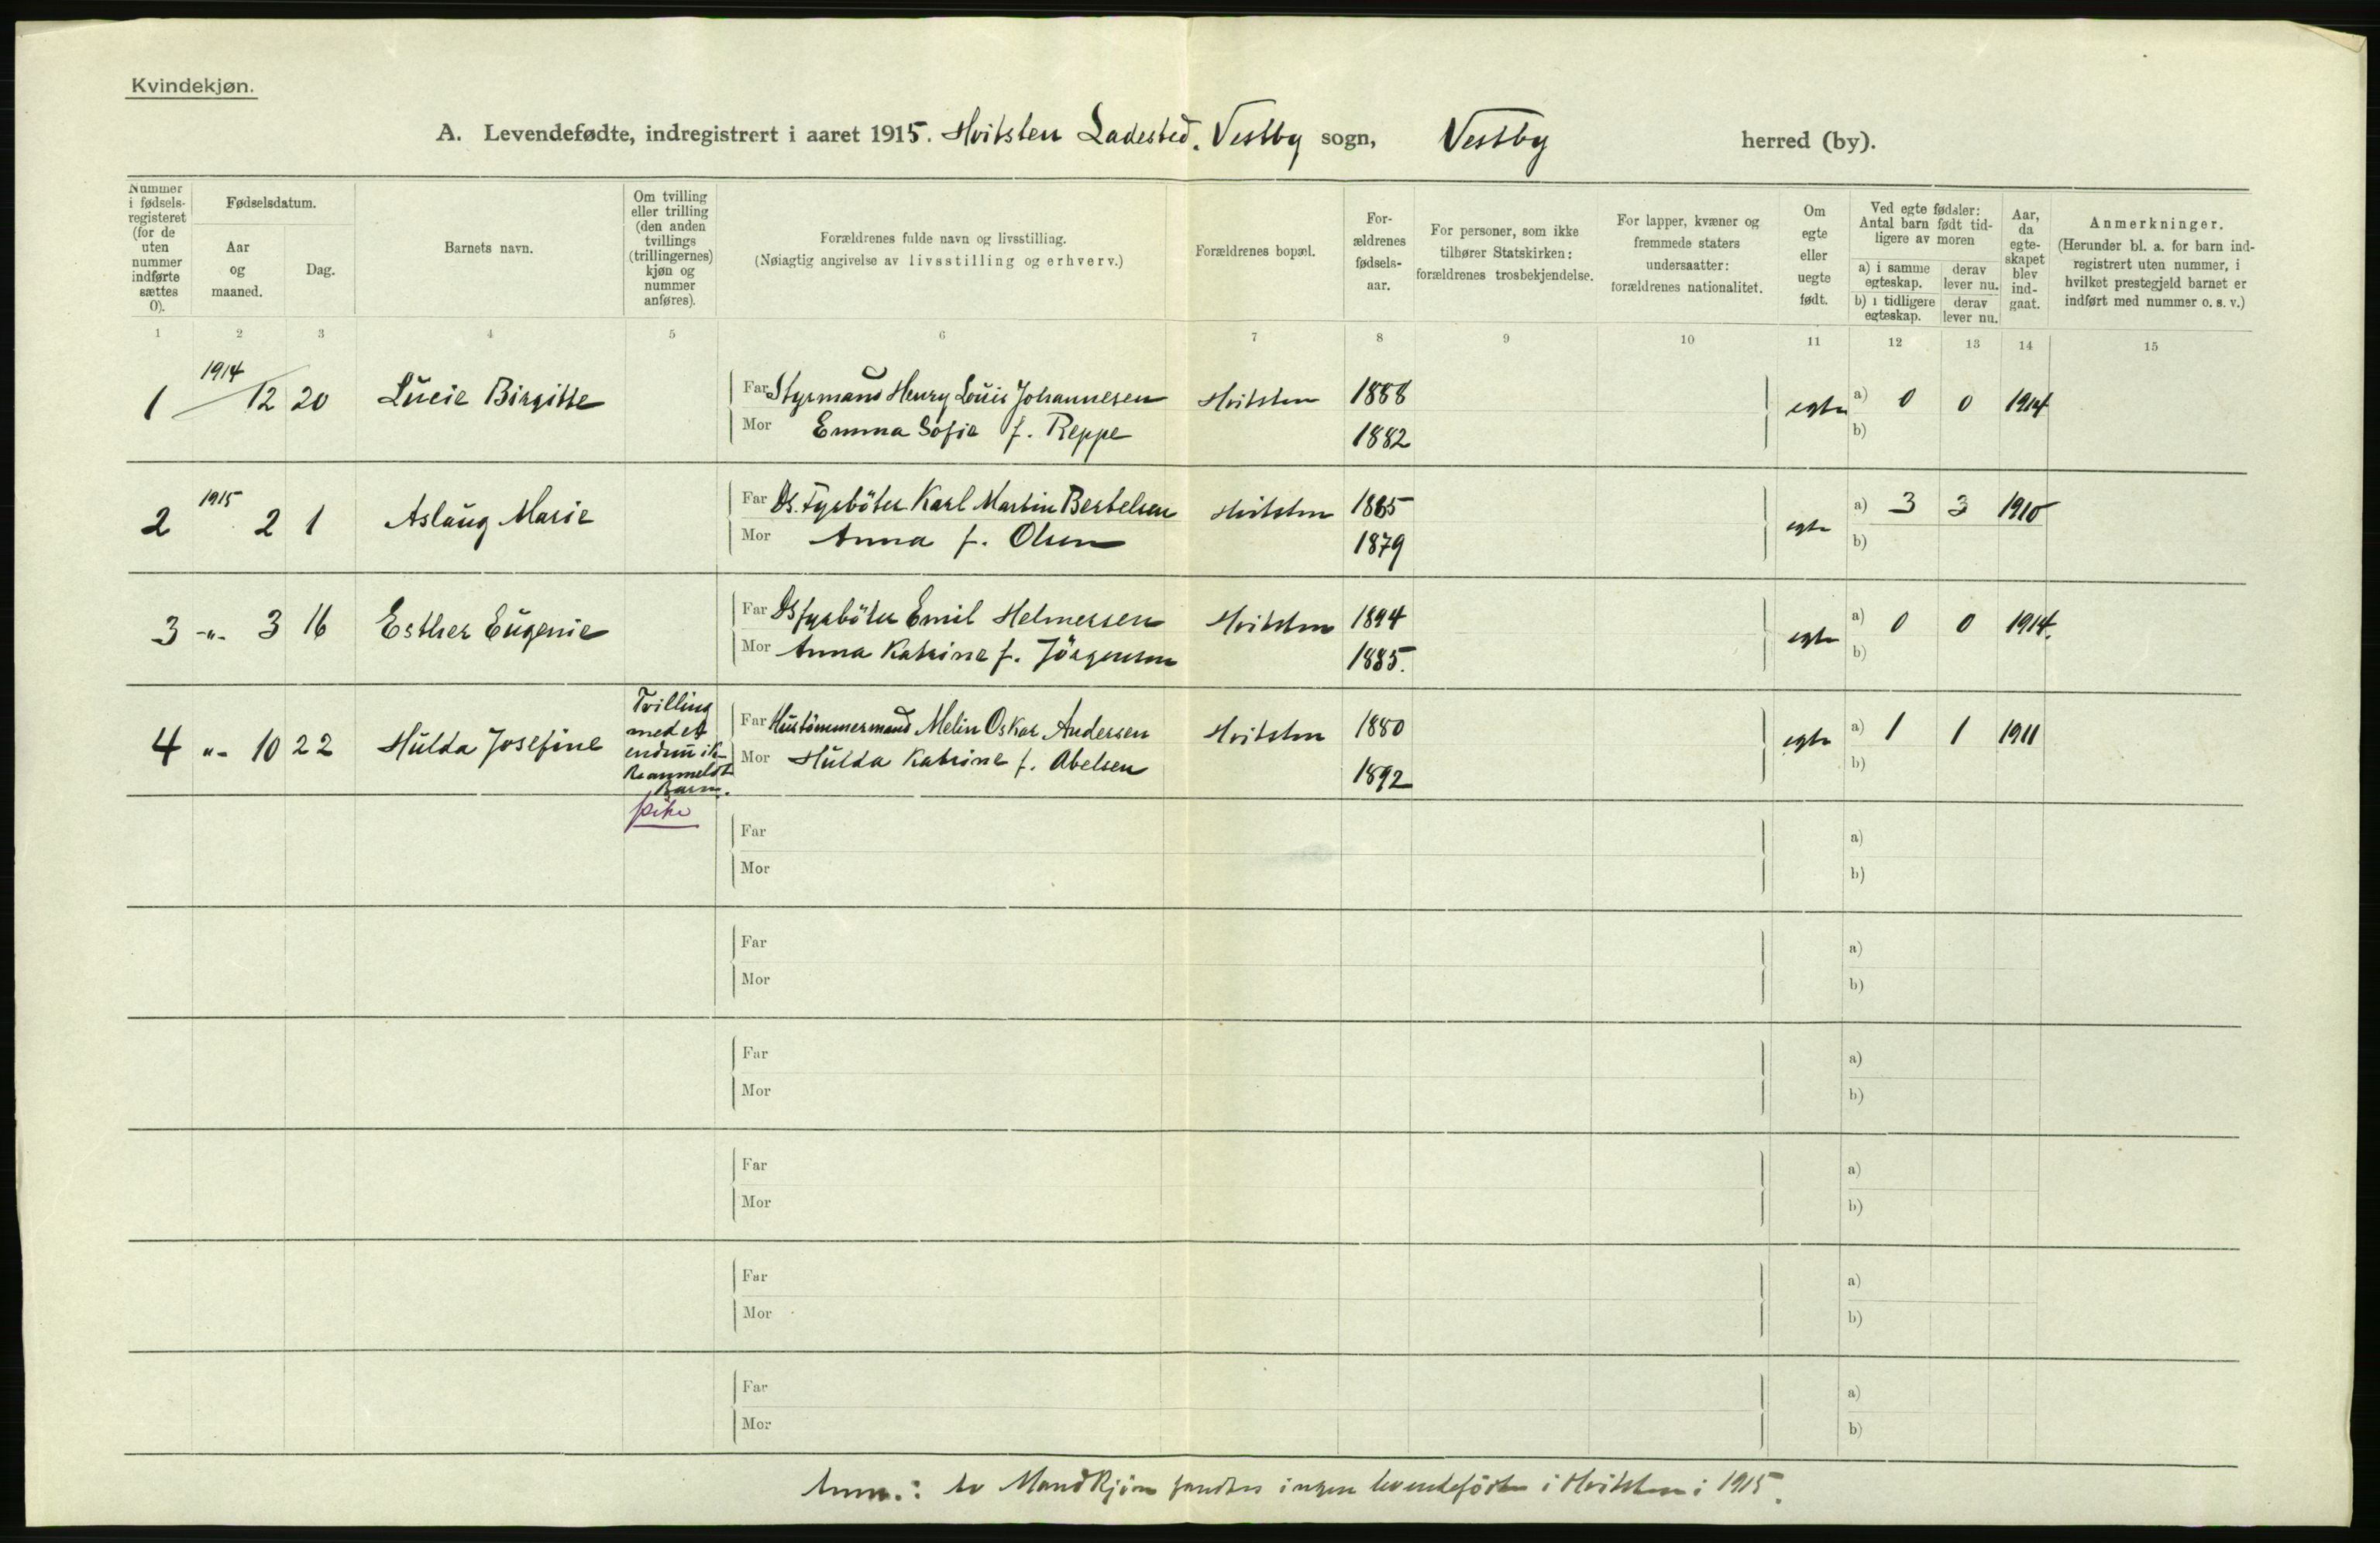 Kvindekjøn.
A. Levendefødte, indregistrert i aaret 1915. Hvitsten Ladested. Vestby sogn, Vestby herred (by).
Nummer i fødselsregisteret (for de uten nummer indførte sættes 0).
Fødselsdatum.
Aar og maaned.
Dag.
Barnets navn.
Om tvilling eller trilling (den anden tvillings (trillingernes) kjøn og nummer anføres).
Forældrenes fulde navn og livsstilling.
(Nøiagtig angivelse av livsstilling og erhverv.)
Forældrenes bopæl.
Forældrenes fødselsaar.
For personer, som ikke tilhører Statskirken: forældrenes trosbekjendelse.
For lapper, kvæner og fremmede staters undersaatter: forældrenes nationalitet.
Om egte eller uegte født.
Ved egte fødsler: Antal barn født tidligere av moren
a) i samme egteskap.
derav lever nu.
b) i tidligere egteskap.
derav lever nu.
Aar, da egteskapet blev indgaat.
Anmerkninger.
(Herunder bl. a. for barn indregistrert uten nummer, i hvilket prestegjeld barnet er indført med nummer o. s. v.)
1 2 3 4 5 6 7 8 9 10 11 12 13 14 15
1 1914 12 20 Lucie Birgitte Far Styrmand Henry Louis Johannesen Hvitsten 1888 egte a) 0 0 1914
Mor Emma Sofie f. Reppe 1882 b)
2 1915 2 1 Aslaug Marie Far Ds. Fyrböter Karl Martin Bertelsen Hvitsten 1885 egte a) 3 3 1910
Mor Anna f. Olsen 1879 b)
3 -"- 3 16 Esther Eugenie Far Ds fyrböter Emil Helmersen Hvitsten 1894 egte a) 0 0 1914.
Mor Anna Katrine f. Jörgensen 1885. b)
4 "- 10 22 Hulda Josefine Tvilling med et endnu ikke anmeldt Barn. pike Far Hustömmermand Melin Oskar Andersen Hvitsten 1880 egte a) 1 1 1911
Mor Hulda Katrine f. Abelsen 1892 b)
Far a)
Mor b)
Far a)
Mor b)
Far a)
Mor b)
Far a)
Mor b)
Far a)
Mor b)
Far a)
Mor b)
Anm.: Av Mandkjön fandtes ingen levendefödte i Hvitsten i 1915.